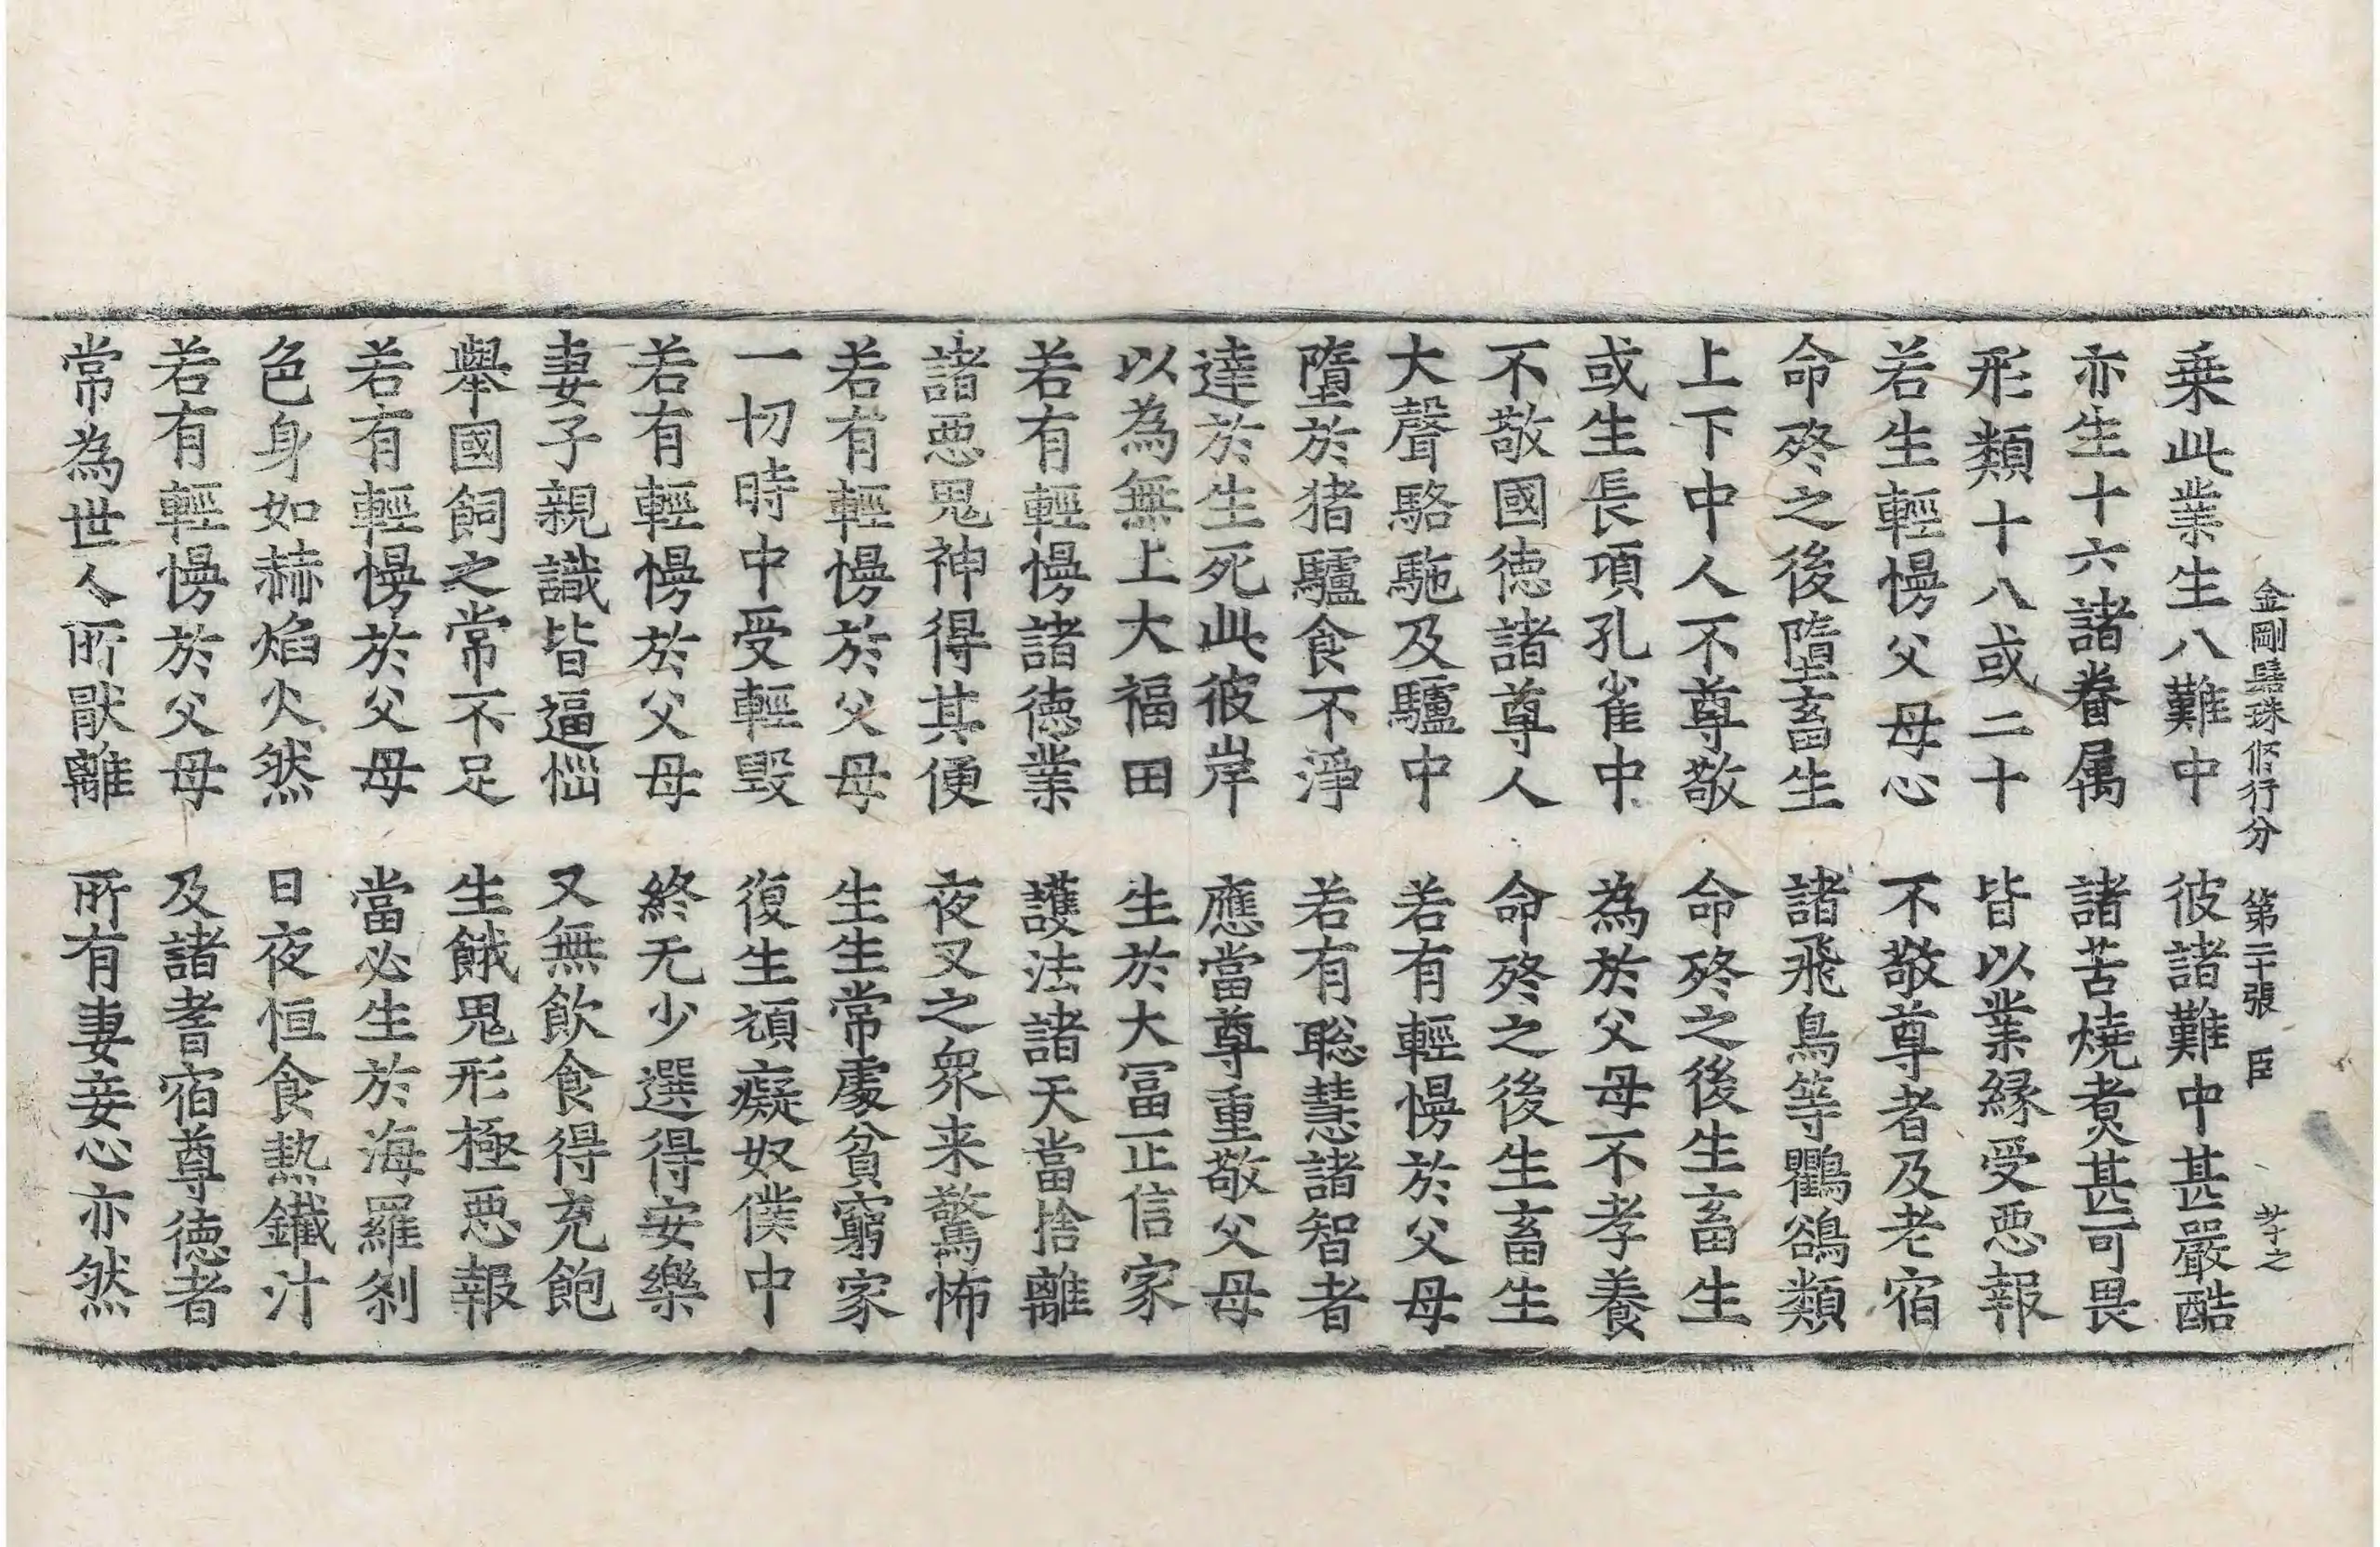 金剛髻珠修行分 第二十張 臣
乗此業生八難中 彼諸難中甚嚴酷
亦生十六諸眷属 諸苦燒煑甚可畏
形類十八或二十 皆以業縁受惡報
若生輕慢父母心 不敬尊者及老宿
命終之後墮畜生 諸飛鳥等鸜鵒類
上下中人不尊敬 命終之後生畜生
或生長項孔雀中 為於父母不孝養
不敬國徳諸尊人 命終之後生畜生
大聲駱駞及驢中 若有輕慢於父母
墮於猪驢食不淨 若有聡慧諸智者
達於生死此彼岸 應當尊重敬父母
以為無上大福田 生於大冨正信家
若有輕慢諸徳業 護法諸天當捨離
諸惡鬼神得其便 夜叉之衆来驚怖
若有輕慢於父母 生生常處貧窮家
一切時中受輕毀 復生頑癡奴僕中
若有輕慢於父母 終无少選得安樂
妻子親識皆逼惱 又無飲食得充飽
舉國飼之常不足 生餓鬼形極惡報
若有輕慢於父母 當必生於海羅刹
色身如赫焰火然 日夜恒食熱鐵汁
若有輕慢於父母 及諸耆宿尊徳者
常為世人所猒離 所有妻妾心亦然